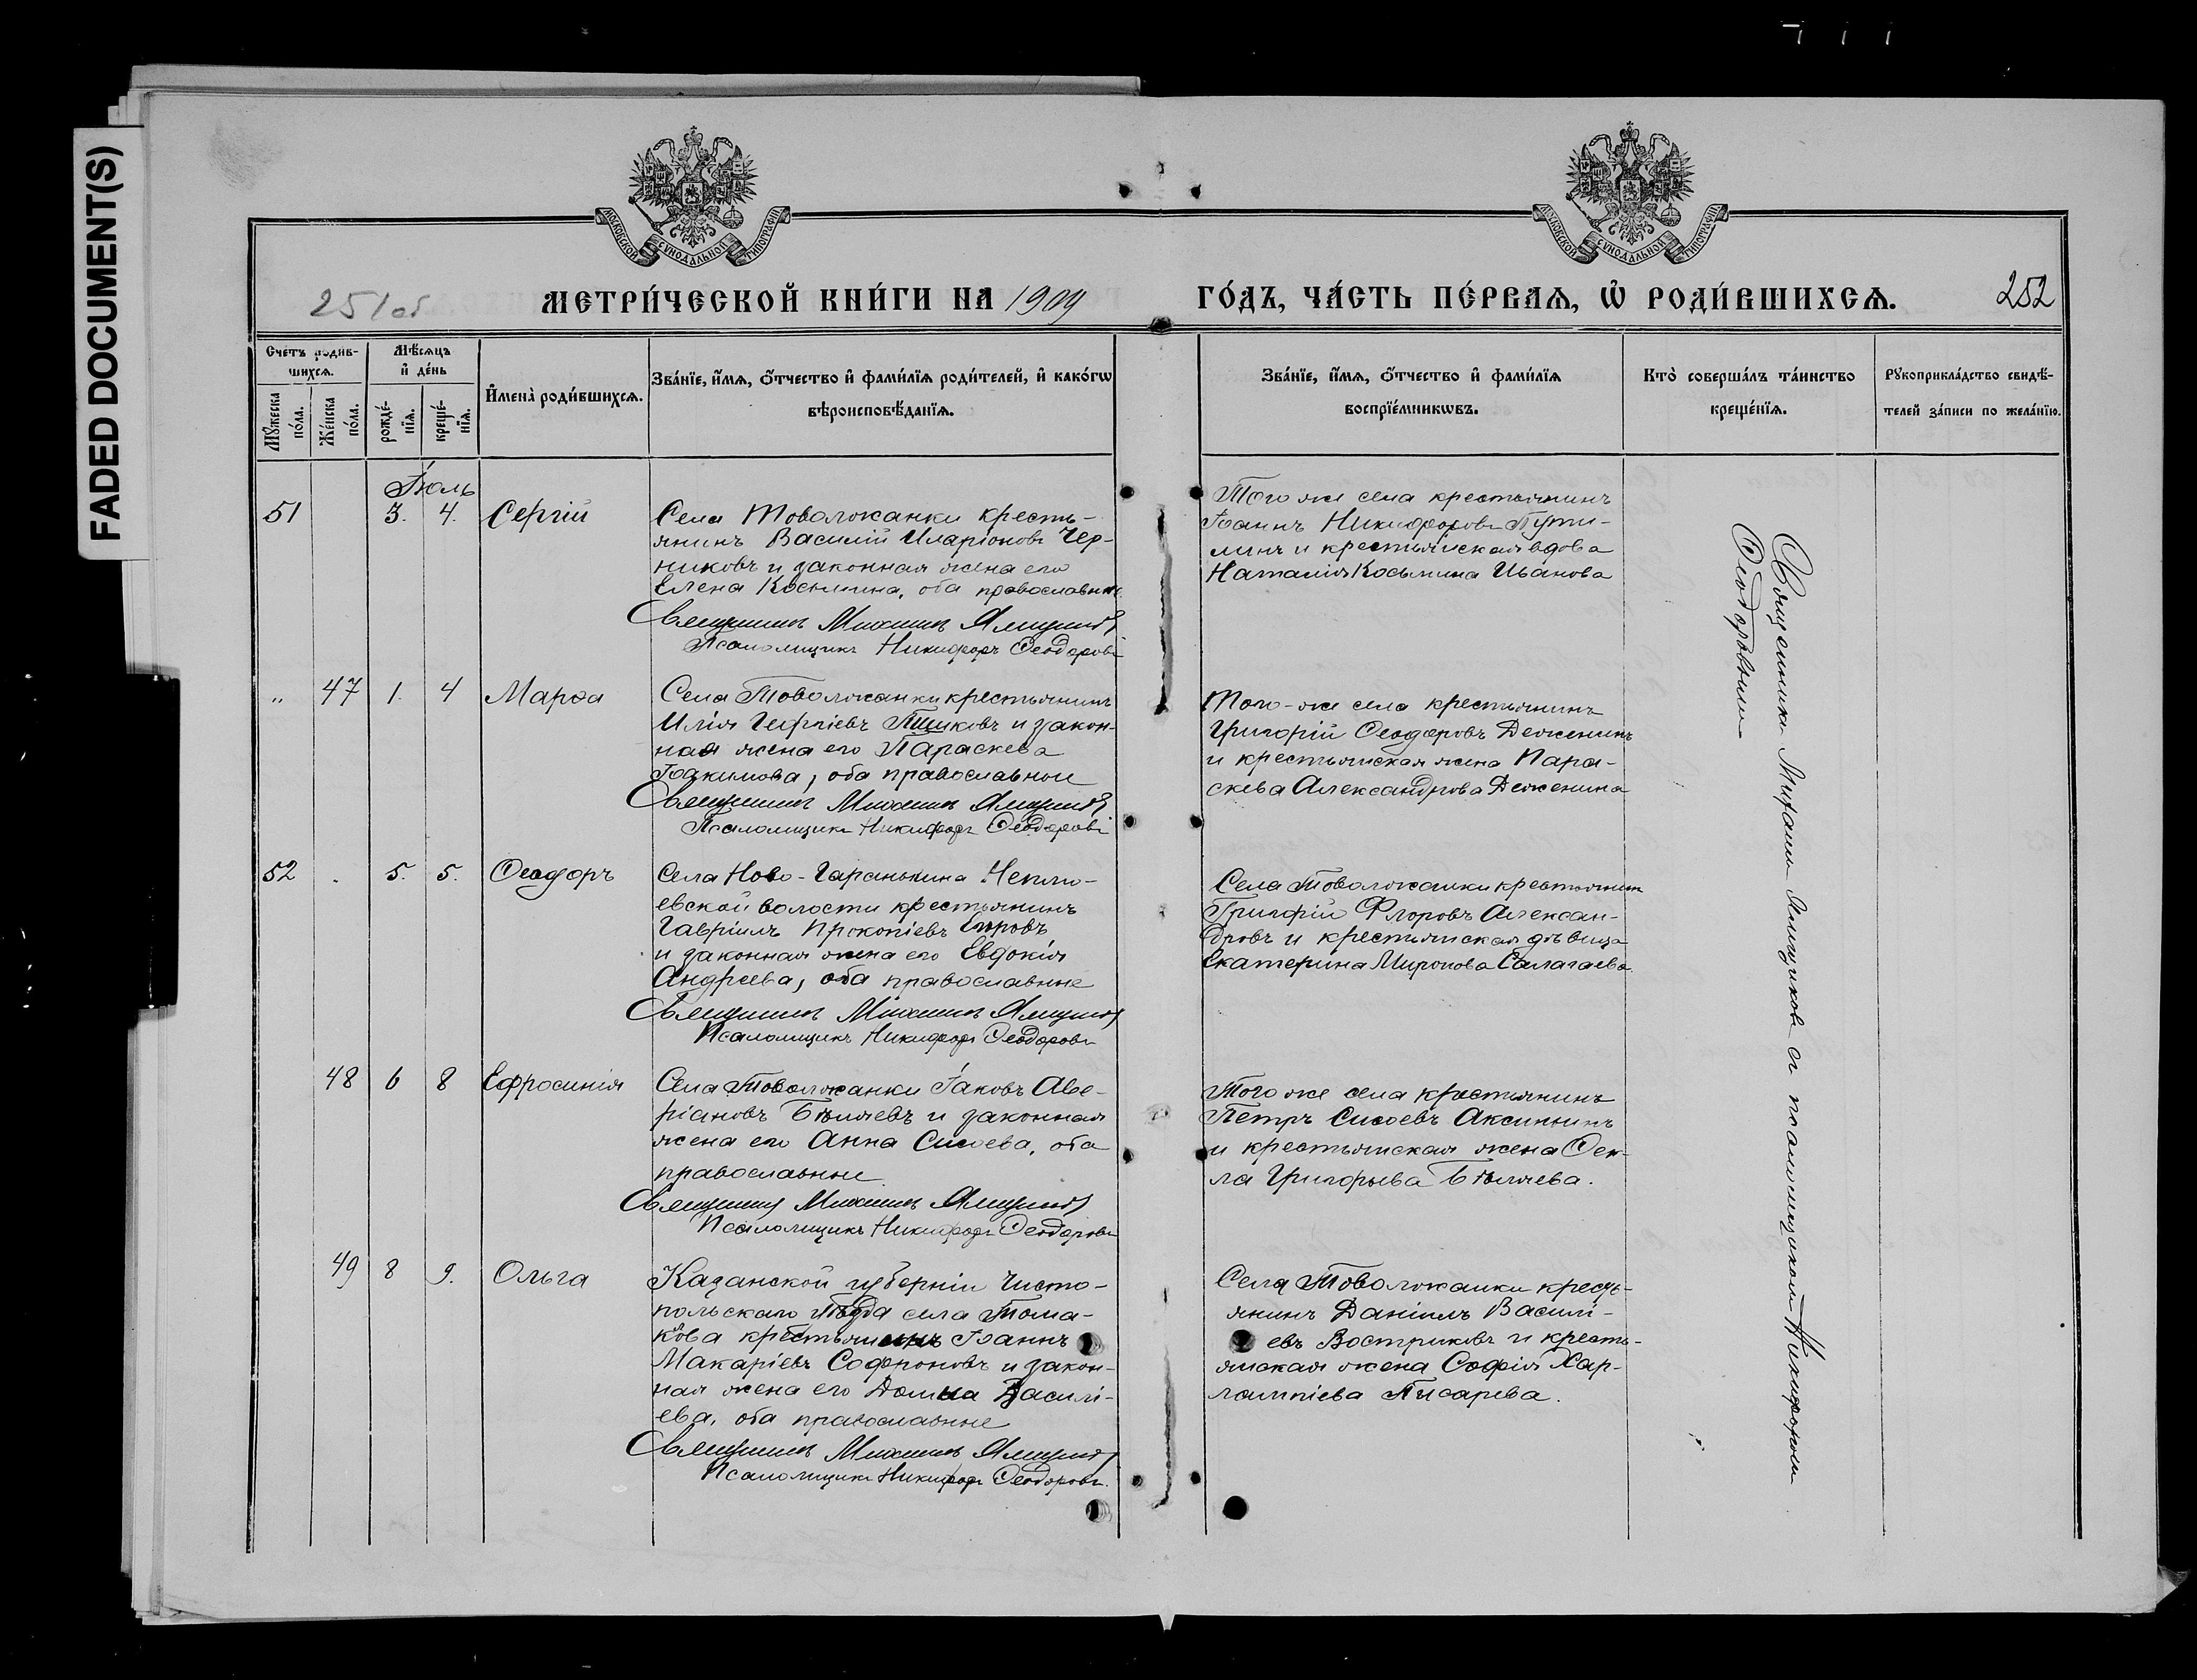 FADED DOCUMENT(S)
МОСКОВСКОЙ СѴНОДАЛЬНОЙ ТИПОГРАФІИ
МОСКОВСКОЙ СѴНОДАЛЬНОЙ ТИПОГРАФІИ
251 об
МЕТРИ́ЧЕСКОЙ КНИ́ГИ НА 1909
ГО́ДЪ, ЧА́СТЬ ПЕ́РВАѦ, Ѡ҆ РОДИ́ВШИХСѦ.
252
Сче́тъ роди́в-
шихсѧ.
Мѣ́сѧцъ
и҆ де́нь
Мꙋ́жеска
по́ла.
Же́нска
по́ла.
рожде́-
нїѧ.
креще́-
нїѧ.
И҆мена̀ роди́вшихсѧ.
Зва́нїе, и҆́мѧ, ѻ҆́тчество и҆ фами́лїѧ роди́телей, и҆ како́гѡ
вѣроисповѣ́данїѧ.
Зва́нїе, и҆́мѧ, ѻ҆́тчество и҆ фами́лїѧ
воспрїе́мникѡвъ.
Кто̀ соверша́лъ та́инство
креще́нїѧ.
Рꙋкоприкла́дство свидѣ́-
телей за́писи по жела́нїю.
Іюль
51 3. 4. Сергій
Села Товоложанки кресть-
янинъ Василій Иларіоновъ Чер-
никовъ и законная жена его
Елена Косьмина, оба православные
Священникъ Михаилъ
Псаломщикъ Никифоръ Ѳеодоровъ
Того же села крестьянинъ
Іоаннъ Никифоровъ Пути-
линъ и крестьянская вдова
Наталія Косьмина Иванова
„ 47 1. 4 Марѳа
Села Товоложанки крестьянинъ
Илія Георгіевъ и закон-
ная жена его Параскева
Іоакимова, оба православные
Священникъ Михаилъ
Псаломщикъ Никифоръ Ѳеодоровъ
Того-же села крестьянинъ
Григорій Ѳеодоровъ Деженинъ
и крестьянская жена Пара-
скева Александрова Деженина
52 . 5. 5. Ѳеодоръ
Села Ново-Гаранькина Неплю-
евской волости крестьянинъ
Гавріилъ Прокопіевъ Егоровъ
и законная жена его Евдокія
Андреева, оба православные
Священникъ Михаилъ
Псаломщикъ Никифоръ Ѳеодоровъ
Села Товоложанки крестьянинъ
Григорій Флоровъ Алексан-
дровъ и крестьянская дѣвица
Екатерина Миронова Салагаева
48 6 8 Ефросинія
Села Товоложанки Іаковъ Аве-
ріановъ Бѣляевъ и законная
жена его Анна Сисоева, оба
православные
Священникъ Михаилъ
Псаломщикъ Никифоръ Ѳеодоровъ
Того же села крестьянинъ
Петръ Сисоевъ Аксининъ
и крестьянская жена Ѳек-
ла Григорьева Бѣляева.
49 8 9. Ольга
Казанской губерніи Чисто-
польскаго уѣзда села Тома-
кова крестьянинъ Іоаннъ
Макаріевъ Софроновъ и закон-
ная жена его Домна Васили-
ева, оба православные
Священникъ Михаилъ
Псаломщикъ Никифоръ Ѳеодоровъ.
Села Товоложанки кресть-
янинъ Даніилъ Васили-
евъ Востриковъ и кресть-
янская жена Софія Хар-
лампіева Писарева.
Священникъ Михаилъ съ псаломщикомъ Никифоромъ
Ѳеодоровымъ